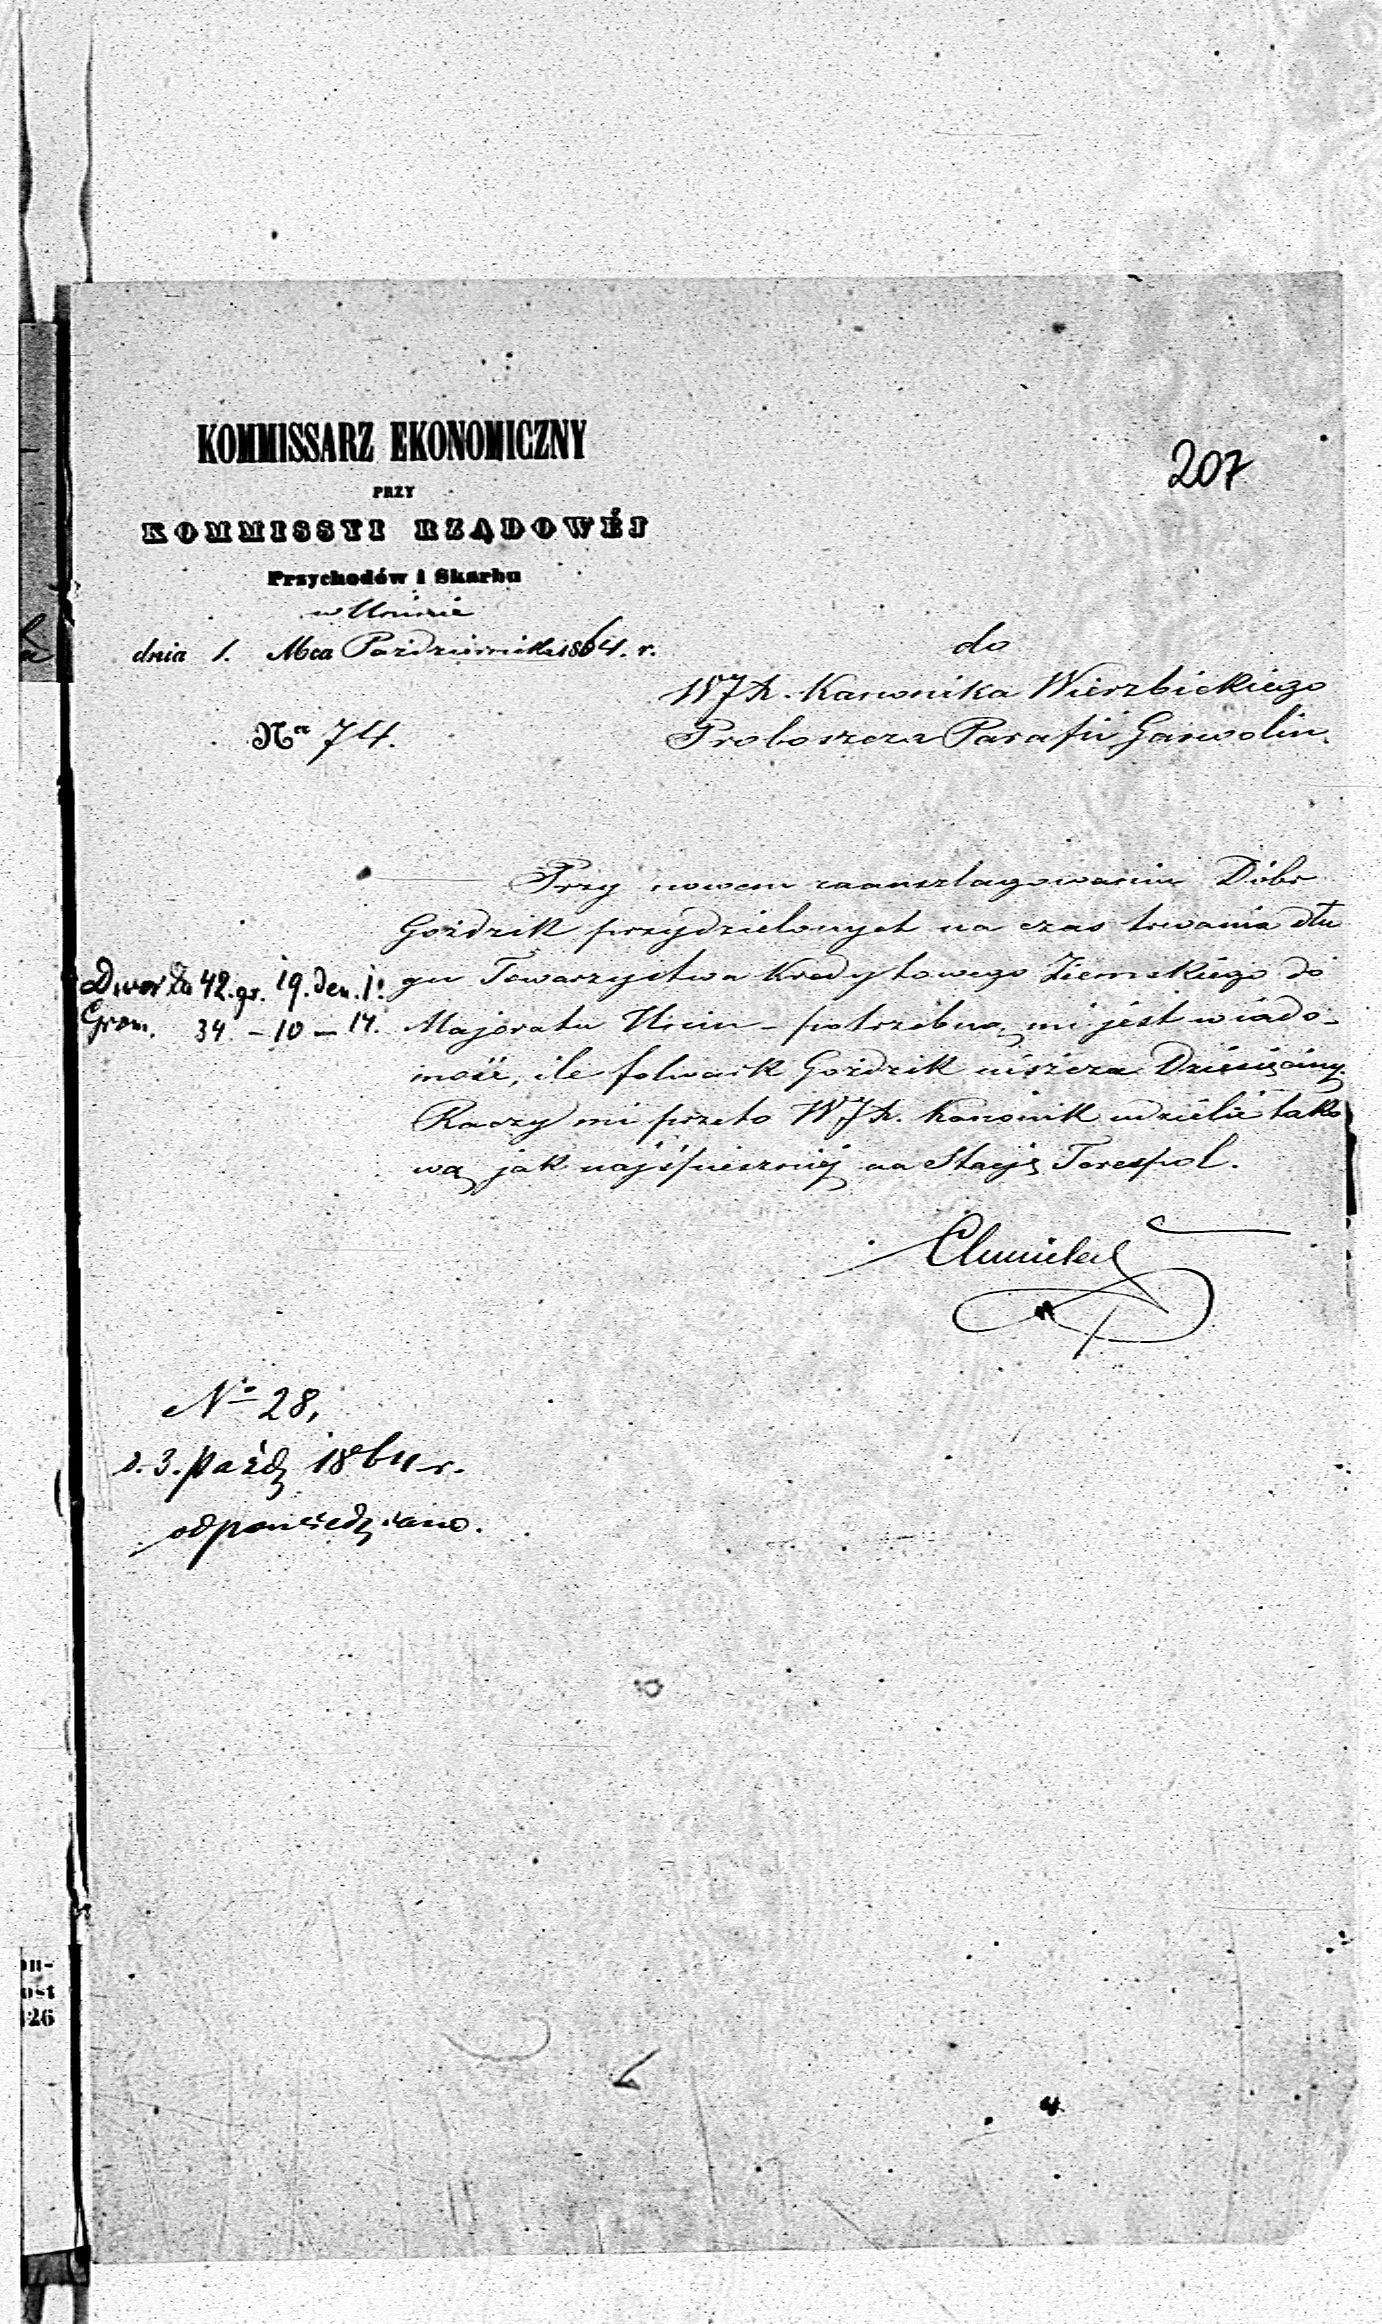 207
KOMMISSARZ EKONOMICZNY
PRZY
KOMMISSYI RZĄDOWÉJ
Przychodów i Skarbu
w
dnia 1. Mca Października 1864. r.
No 74.
do
WJX. Kanonika Wierzbickiego
Proboszcza Parafii Garwolin.
Przy nowem zaanszlagowaniu Dóbr
Goździk przydzielonych na czas trwania dłu
gu Towarzystwa Kredytowego Ziemskiego do
Majoratu - potrzebną mi jest wiado-
mość, ile folwark Goździk uiszcza Dziesięciny.
Raczy mi przeto WJX. Kanonik udzielić tako
wą jak najśpieszniej na Stację Terespol.
Dwór Złr 42. gr. 19. den. 1.
Grom. 34 - 10 - 14.
No 28,
d. 3. Paźdz 1864 r.
odpowiedziano.
on-
ost
126